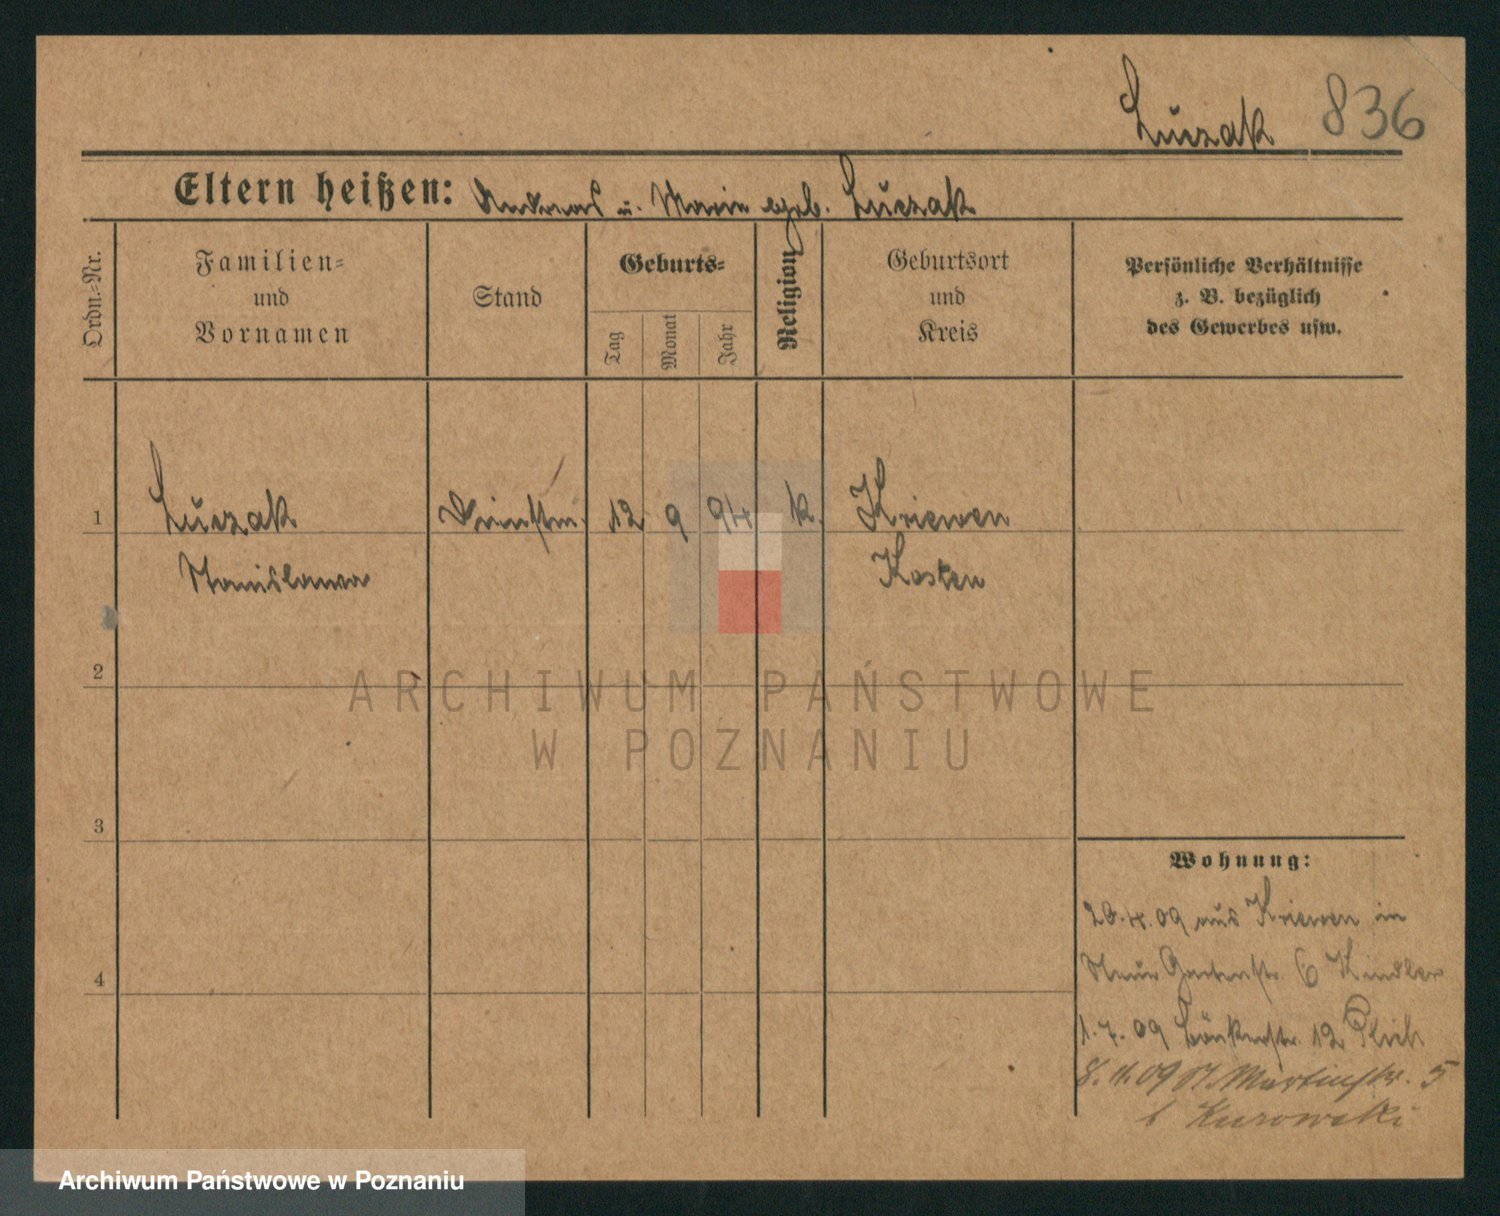 Łuczak 836
Eltern heißen: Andreas u. Marie geb. Łuczak
Ordn.-Nr.
Familien-
und
Vornamen
Stand
Geburts-
Tag
Monat
Jahr
Religion
Geburtsort
und
Kreis
Persönliche Verhältnisse
z. B. bezüglich
des Gewerbes usw.
1 Łuczak 12 9 94 k. Kriewen
Stanislawa Kosten
2
3
4
Wohnung:
20.4.09 aus Kriewen in
Neue Gartenstr. 6 Kindler
1.7.09 Bäckerstr. 12
8.11.09 St. Martinstr. 5
b Kurowski
ARCHIWUM PAŃSTWOWE
W POZNANIU
Archiwum Państwowe w Poznaniu